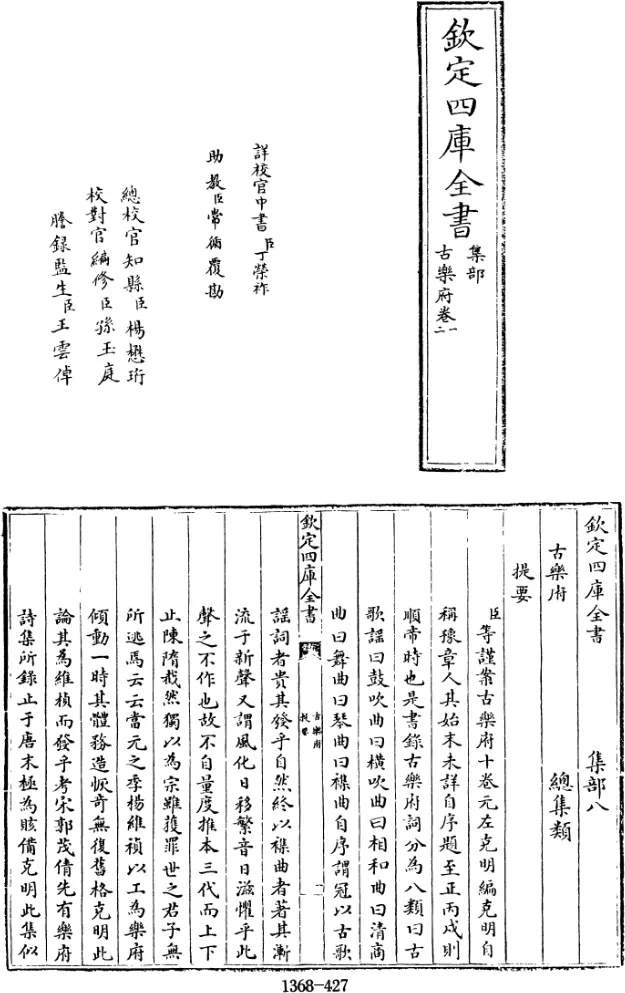 欽定四庫全書
集部
古樂府卷一
二
詳校官中書臣丁榮祚
助教臣常循覆勘
總校官知縣臣楊懋珩
校對官編修臣孫玉庭
謄錄監生臣王雲倬
欽定四庫全書 集部八
古樂府 總集類
提要
臣等謹案古樂府十卷元左克明編克明自
稱豫章人其始末未詳自序題至正丙戌則
順帝時也是書錄古樂府詞分為八類曰古
歌謡曰鼓吹曲曰橫吹曲曰相和曲曰清商
曲曰舞曲曰琴曲曰襍曲自序謂冠以古歌
欽定四庫全書
古樂府
提要
一
謡詞者貴其發乎自然終以襍曲者著其漸
流于新聲又謂風化日移繁音日滋懼乎此
聲之不作也故不自量度推本三代而上下
止陳隋截然獨以為宗雖獲罪世之君子無
所逃焉云云當元之季楊維禎以工為樂府
傾動一時其體務造恢奇無復舊格克明此
論其為維禎而發乎考宋郭茂倩先有樂府
詩集所錄止于唐末極為賅備克明此集似
1368-427